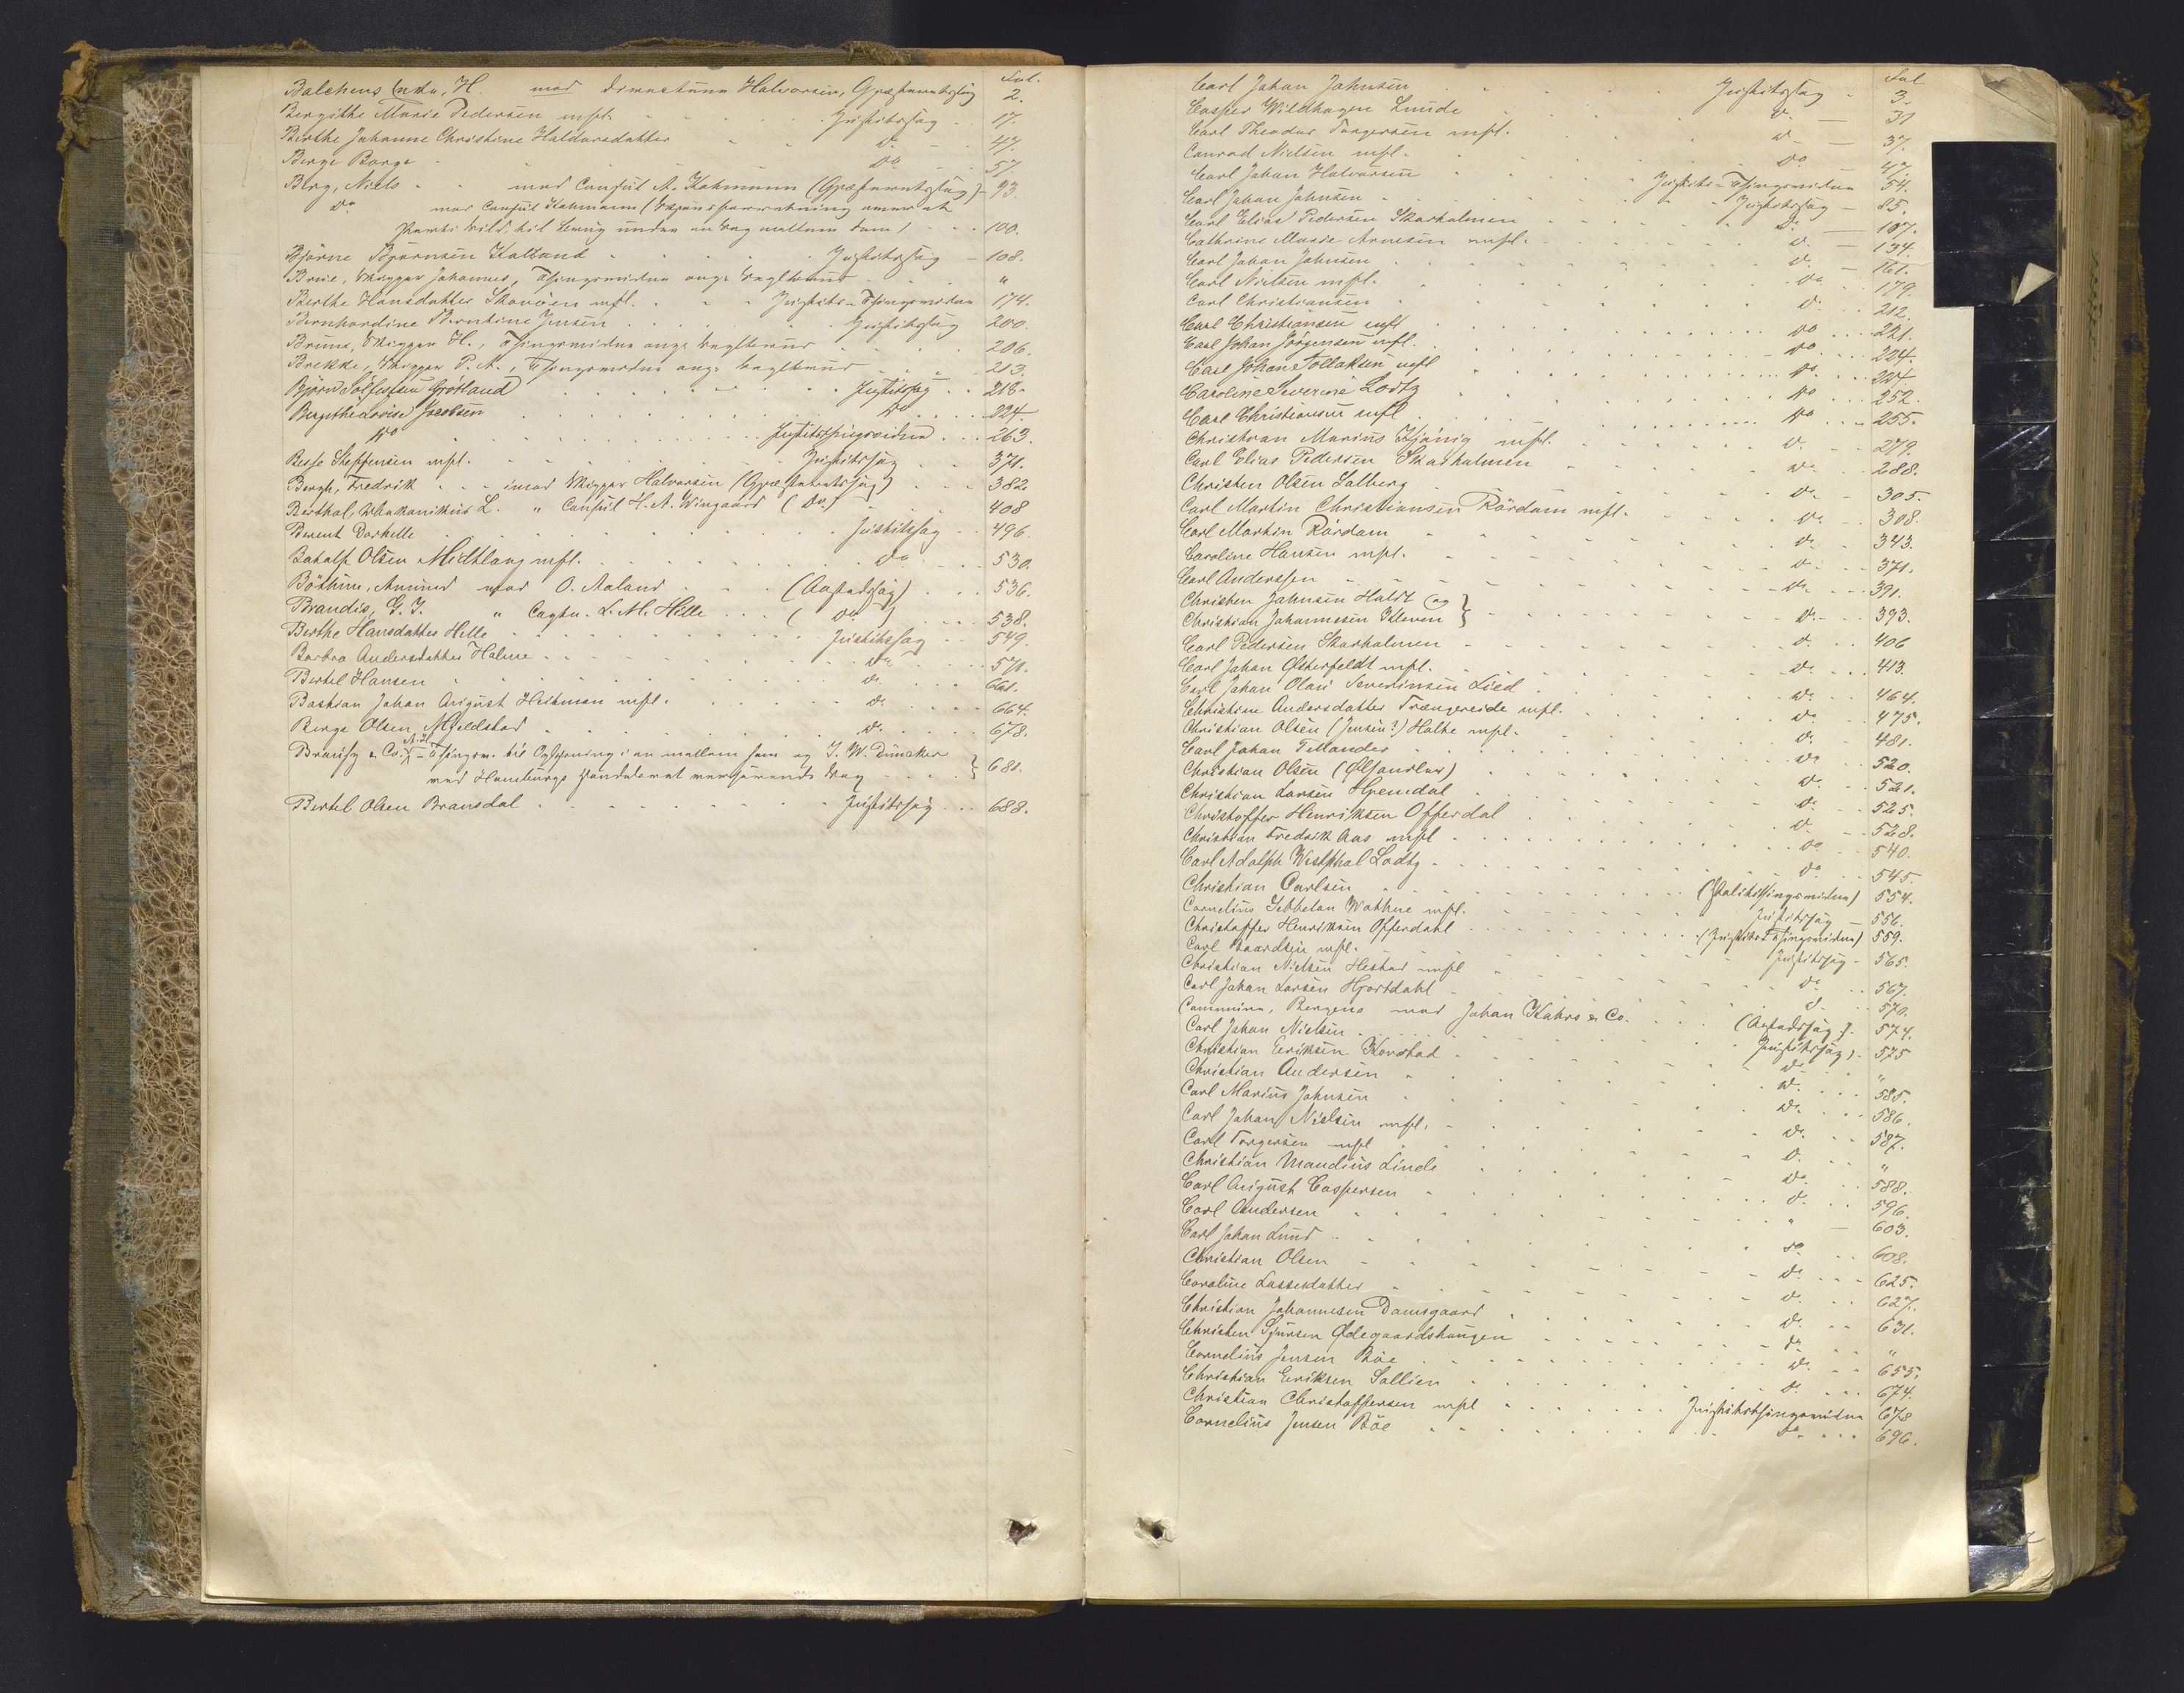 Fol.
Balchens Enke, H. mod Halvorsen, Gjæsteretssag 2.
Birgithe Marie Pedersen mfl. Justitssag 17.
Berthe Johanne Christine Haldorsdatter do 47.
Berge Borge do 57.
Berg, Niels mod Consul A. Kahmann (Gjæsteretssag) 93.
do mod Consul Kahmann 100.
Bjørne Bjørnsen Kalland Justitssag 108.
Brue, Skipper Johannes, Thingsvidne ang. "
Berthe Hansdatter Skaveen mfl. Justits-Thingsvidne 174.
Bernhardine Berntine Jensen Justitssag 200.
Bruns, Skipper H., Thingsvidne ang. 206.
Brekke, Skipper P. A., Thingsvidne ang. 213.
Bjørn Solfestsen Grøtland Justitssag 218.
Bergithe Lovise Jacobsen do 224
do Justitsthingsvidne 263.
Besse Steffensen mfl. Justitssag 371.
Bergh, Fredrik imod Skipper Halvorsen (Gjæsteretssag) 382
Berthal, Mekanikus L. " Consul H. A. Wingaard (Do.) 408
Berent Dorkelle Justitssag 496.
Botolf Olsen Midtlang mfl. do 530.
Böthun, Amund mod O. Aaland (Aastedssag) 536.
Brandis, G. J. " Captn. L. M. Hille (do) 538.
Berthe Hansdatter Hille Justitssag 549.
Barbra Andersdatter Holme do 571.
Bertel Hansen do 661.
Bastian Johan August Heitman mfl. do 664.
Berge Olsen Mjeldstad do 678.
Braurig & Co. A. H. - Thingsv. til Oplysning i en mellem ham og J. W. Duncker
ved Hamburgs Handelsret verserende Sag 681.
Bertel Olsen Bransdal Justitssag 688.
Fol
Carl Johan Johnsen Justitssag 3.
Casper Wildhagen Lunde do 31
Carl Theodor Torgersen mfl. do 37.
Conrad Nielsen mfl. do 47.
Carl Johan Halvorsen Justits-Thingsvidne 54.
Carl Johan Johnsen Justitssag 85.
Carl Elias Pedersen Skarholmen do 107.
Cathrine Marie Arnesen mfl. do 134.
Carl Johan Johnsen do 161.
Carl Nielsen mfl. do 179.
Carl Christiansen do 212.
Carl Christiansen mfl do 221.
Carl Johan Jörgensen mfl. do 224.
Carl Johan Tollaksen mfl do 227.
Caroline Severine Lodtz do 252.
Carl Christiansen mfl do 255.
Christian Marius Kjönig mfl. do 279.
Carl Elias Pedersen Skarholmen do 288.
Christen Olsen Salberg do 305.
Carl Martin Christiansen Rördam mfl. do 308.
Carl Martin Rördam do 343.
Caroline Hansen mfl. do 371.
Carl Anderssen do 391.
Christen Johnsen Holdt og
Christian Johannesen Kleven do 393.
Carl Pedersen Skarholmen do 406
Carl Johan Østerfeldt mfl. do 413.
Carl Johan Olai Severinsen Lied do 464.
Christine Andersdatter Trængereide mfl. do 475.
Christian Olsen (Jensen?) Holthe mfl. do 481.
Carl Johan Tellander do 520.
Christian Olsen (Ølhandler) do 521.
Christian Larsen Hjemdal do 525.
Christoffer Henriksen Offerdal do 528.
Christian Fredrik Aas mfl do 540.
Carl Adolph Westphal Lodtz do 545.
Christian Carlsen (Politithingsvidne) 554.
Cornelius Tebbetan Wathne mfl. Justitssag 556.
Christoffer Henriksen Offerdahl (Justitsthingsvidne) 559.
Carl Baardsen mfl. Justitssag 565.
Christian Nielsen Hestad mfl do 567.
Carl Johan Larsen Hjortdahl do 570.
Commune, Bergens mod Johan Kahrs & Co. (Aastedssag) 574.
Carl Johan Nielsen Justitssag 575
Christian Eeriksen Korstad do "
Christian Andersen do 585.
Carl Marius Johnsen do 586.
Carl Johan Nielsen mfl. do 587.
Carl Torgersen mfl do "
Christian Maudius Linde do 588.
Carl August Caspersen do 596.
Carl Andersen " 603.
Carl Johan Lund do 608.
Christian Olsen do 625.
Caroline Lassesdatter do 627.
Christian Johannesen Damsgaard do 631.
Christen Sjursen Ødegaardshaugen do "
Cornelius Jensen Böe do 655.
Christian Eeriksen Sollien do 674.
Christian Christoffersen mfl Justitsthingsvidne 678
Cornelius Jensen Böe do 696.